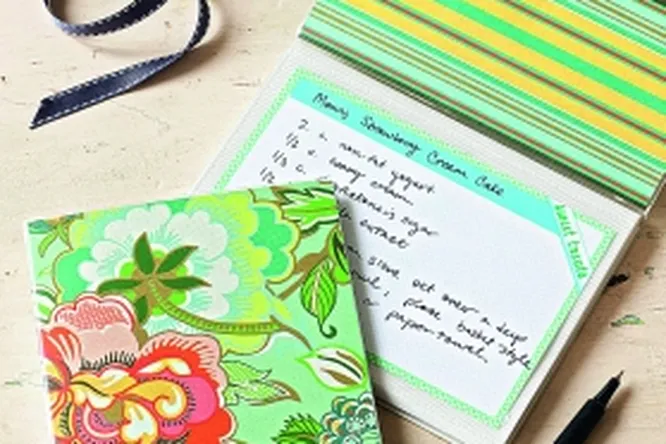 Mom's Strawberry Cream Cake
2 c. non-fat yogurt
1/2 c. heavy cream
1/3 c. confectioner's sugar
1/2 extract
sieve set over a deep
bowl; place basket style
or paper towel.
sweet treats